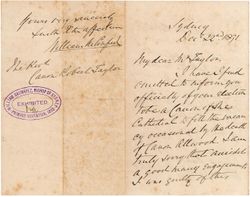 Yours very sincerely
with
William
The Revd
Canon Robert Taylor
EXHIBITED
Sydney
Dec 22nd 1871
My dear Mr Taylor,
I have I find
omitted to inform you
officially of your election
to a Canonry of the
Cathedral to fill the vacan
cy occasioned by the death
of Canon Allwood. I am
truly sorry that amidst
a good many engagements
I was guilty of this